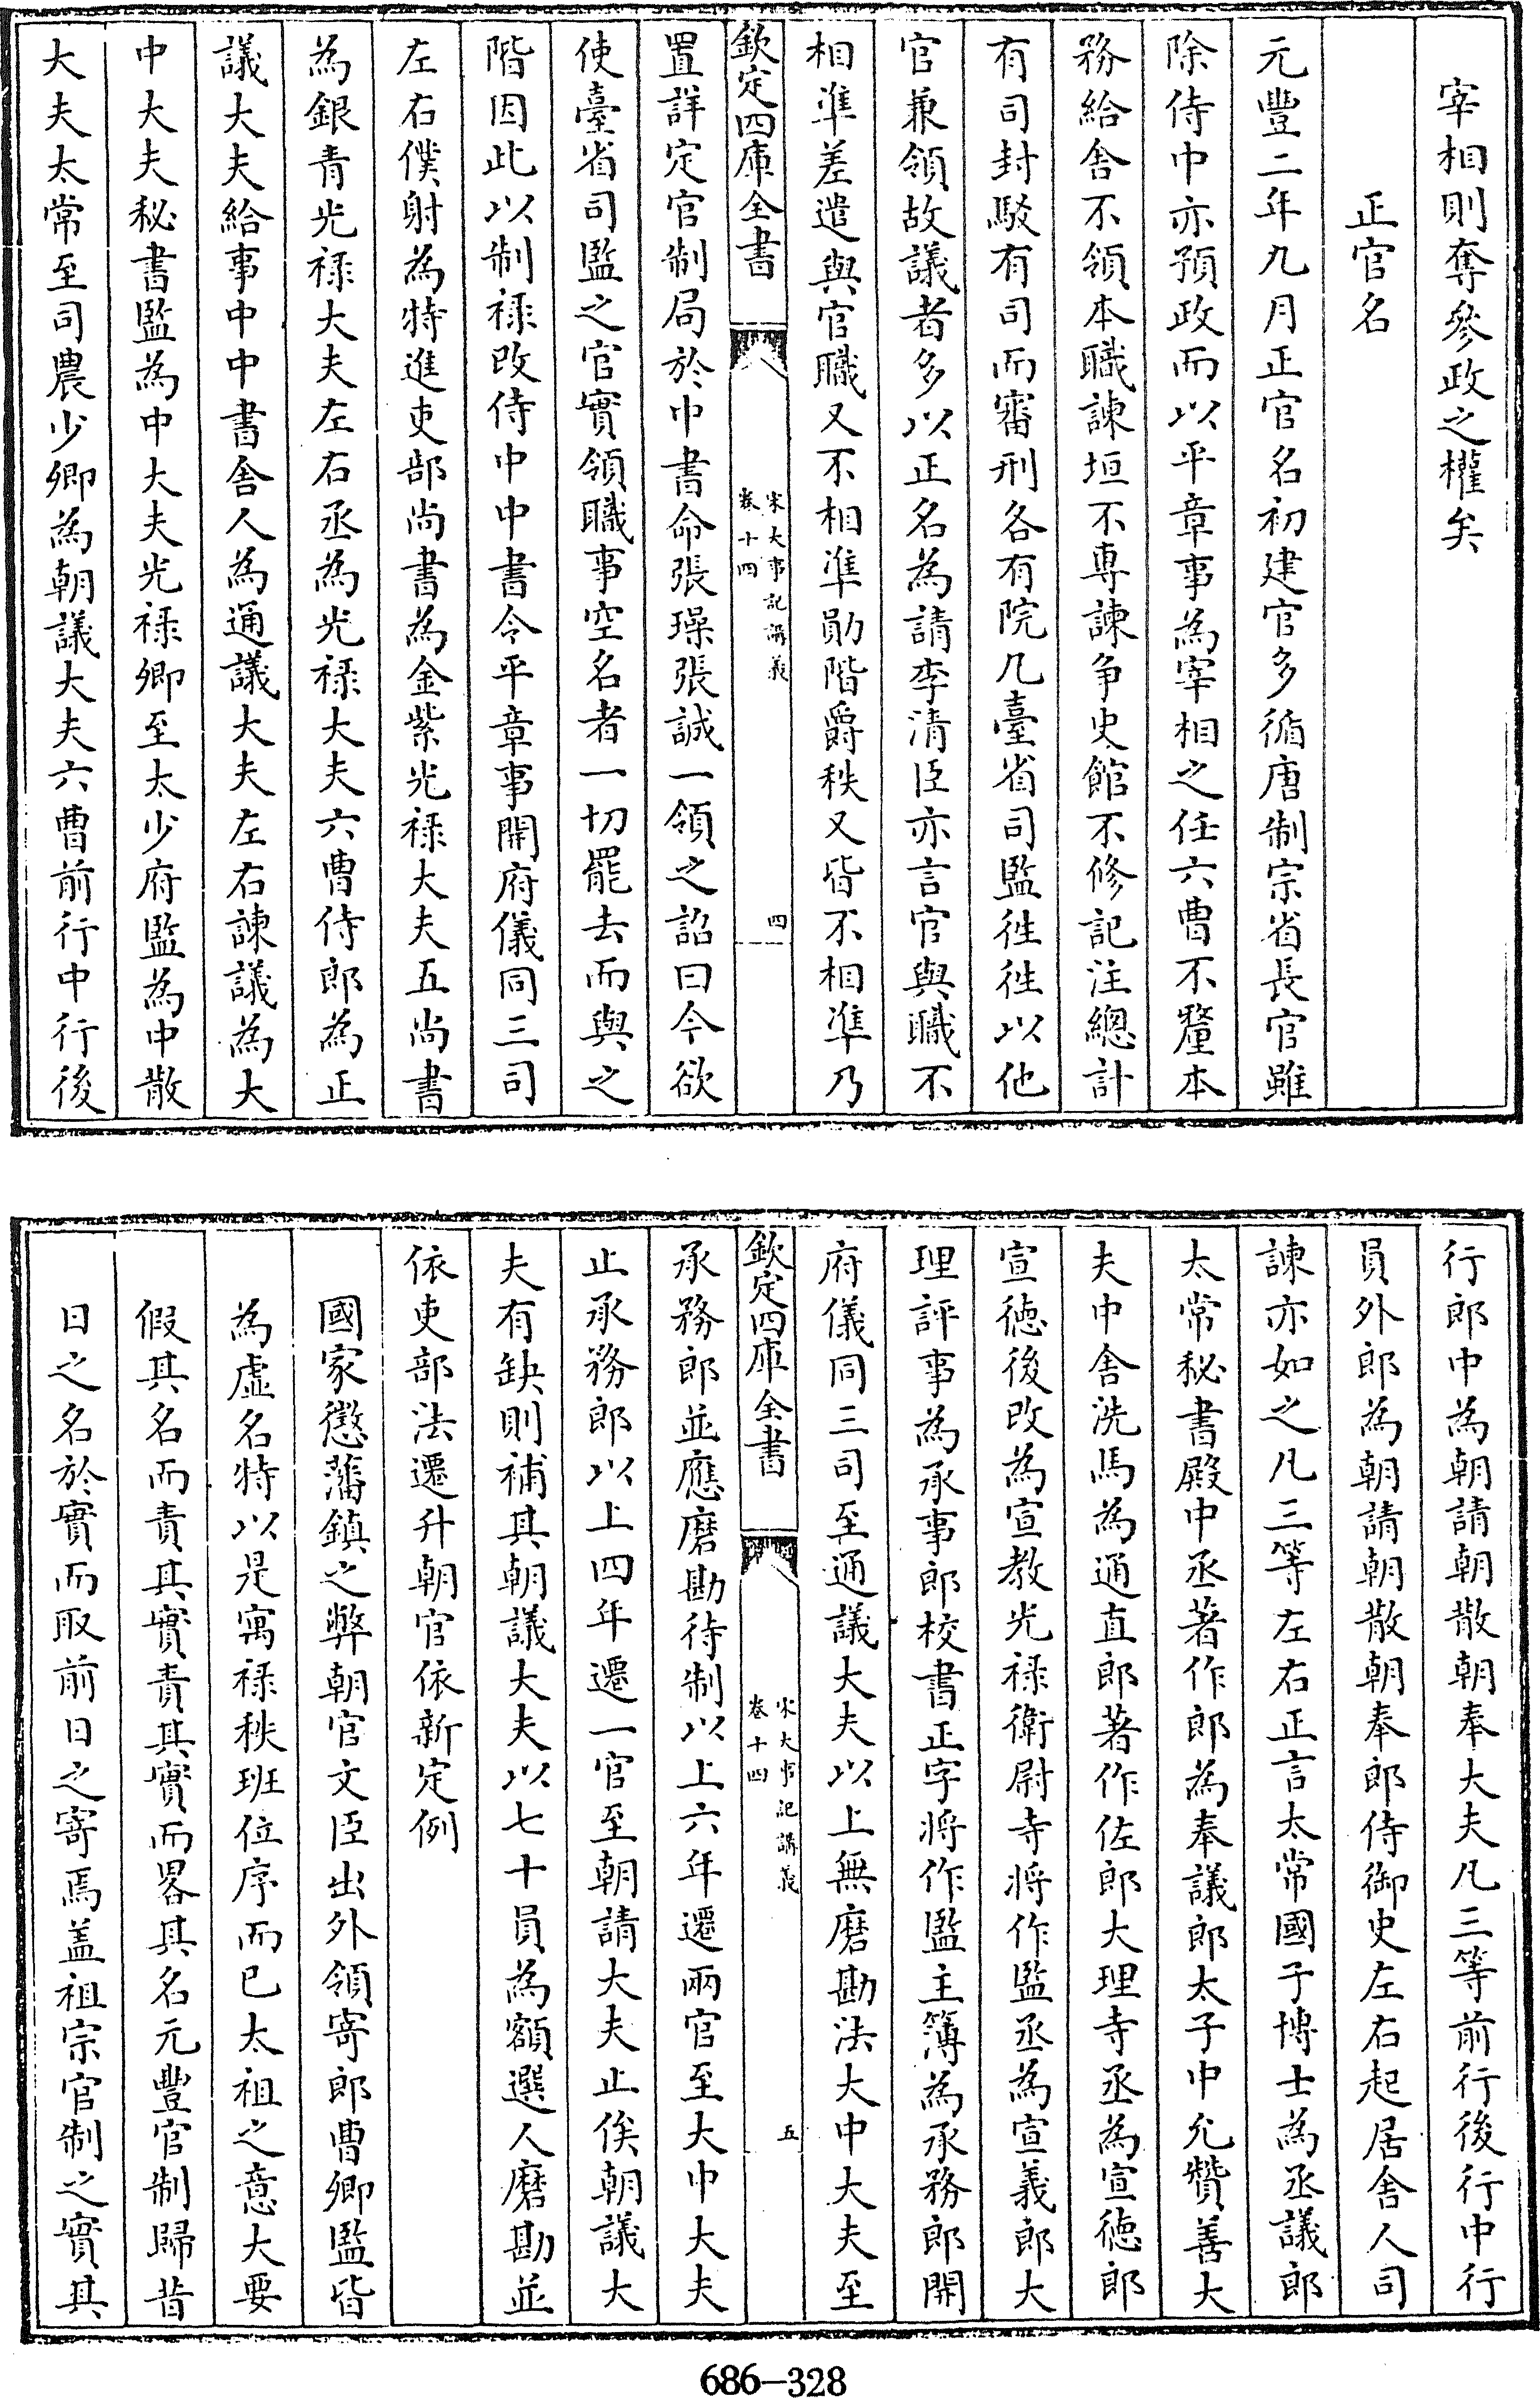 宰相則奪參政之權矣
正官名
元豐二年九月正官名初建官多循唐制宗省長官雖
除侍中亦預政而以平章事為宰相之任六曹不釐本
務給舍不領本職諫垣不專諫争史館不修記注總計
有司封駁有司而審刑各有院凡臺省司監徃徃以他
官兼領故議者多以正名為請李清臣亦言官與職不
相凖差遣與官職又不相凖勛階爵秩又皆不相凖乃
欽定四庫全書
宋大事記講義
卷十四
四
置詳定官制局於中書命張璪張誠一領之詔曰今欲
使臺省司監之官實領職事空名者一切罷去而與之
階因此以制禄改侍中中書令平章事開府儀同三司
左右僕射為特進吏部尚書為金紫光禄大夫五尚書
為銀青光禄大夫左右丞為光禄大夫六曹侍郎為正
議大夫給事中中書舍人為通議大夫左右諫議為大
中大夫秘書監為中大夫光禄卿至太少府監為中散
大夫太常至司農少卿為朝議大夫六曹前行中行後
行郎中為朝請朝散朝奉大夫凡三等前行後行中行
員外郎為朝請朝散朝奉郎侍御史左右起居舍人司
諫亦如之凡三等左右正言太常國子博士為丞議郎
太常秘書殿中丞著作郎為奉議郎太子中允贊善大
夫中舍洗馬為通直郎著作佐郎大理寺丞為宣徳郎
宣徳後改為宣教光禄衛尉寺將作監丞為宣義郎大
理評事為承事郎校書正字將作監主簿為承務郎開
府儀同三司至通議大夫以上無磨勘法大中大夫至
欽定四庫全書
宋大事記講義
卷十四
五
承務郎並應磨勘待制以上六年遷兩官至大中大夫
止承務郎以上四年遷一官至朝請大夫止俟朝議大
夫有缺則補其朝議大夫以七十員為額選人磨勘並
依吏部法遷升朝官依新定例
國家懲藩鎮之弊朝官文臣出外領寄郎曹卿監皆
為虚名特以是寓禄秩班位序而已太祖之意大要
假其名而責其實責其實而畧其名元豐官制歸昔
日之名於實而取前日之寄焉盖祖宗官制之實其
686-328